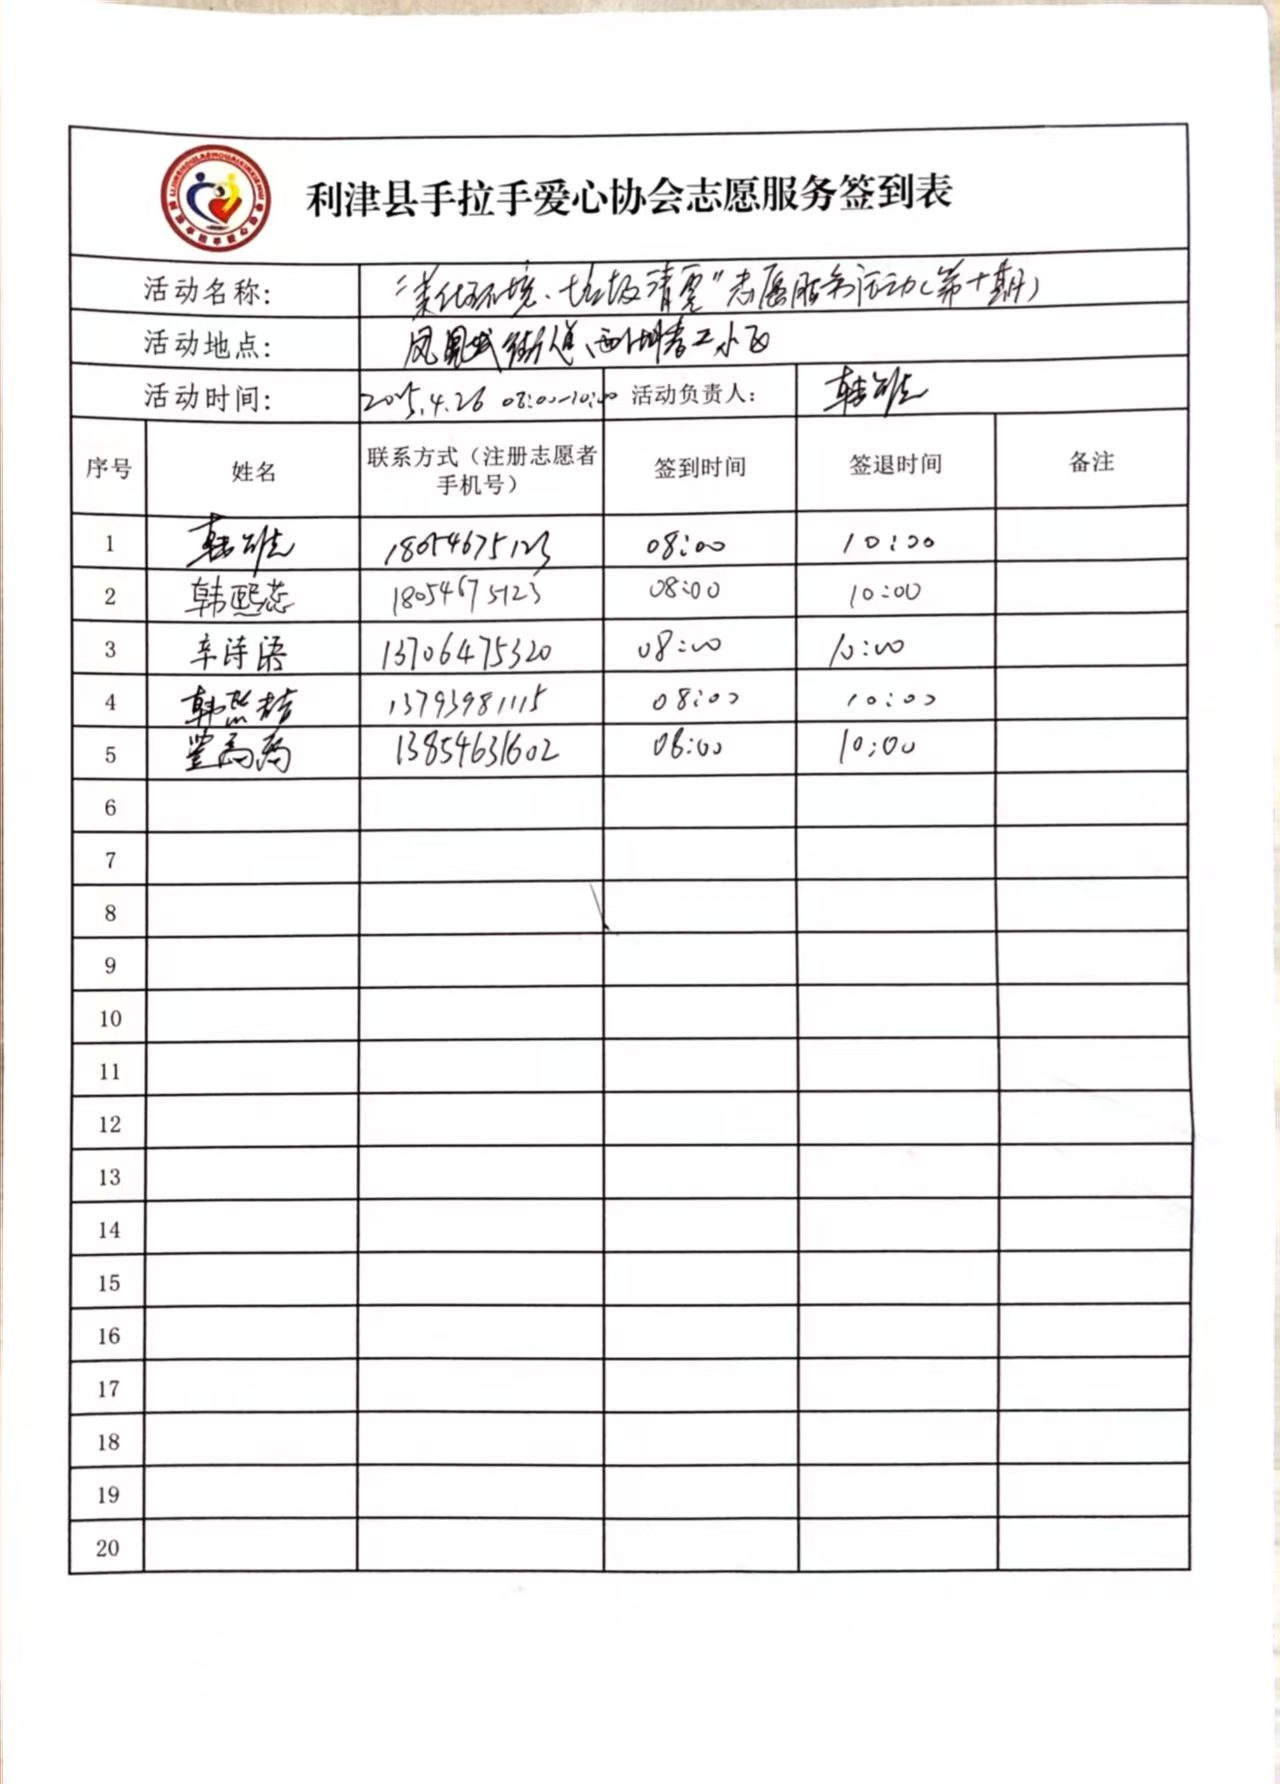 利津县手拉手爱心协会志愿服务签到表
活动名称： “美化环境、垃圾清零”志愿服务活动（第十期）
活动地点： 凤凰城街道西街小区
活动时间： 2025.4.26 08:00-10:00 活动负责人： 韩
序号 姓名 联系方式（注册志愿者手机号） 签到时间 签退时间 备注
1 韩 18054675123 08:00 10:00
2 韩熙蕊 18054675123 08:00 10:00
3 辛诗语 13706475320 08:00 10:00
4 韩熙喆 13793981115 08:00 10:00
5 13854631602 08:00 10:00
6
7
8
9
10
11
12
13
14
15
16
17
18
19
20